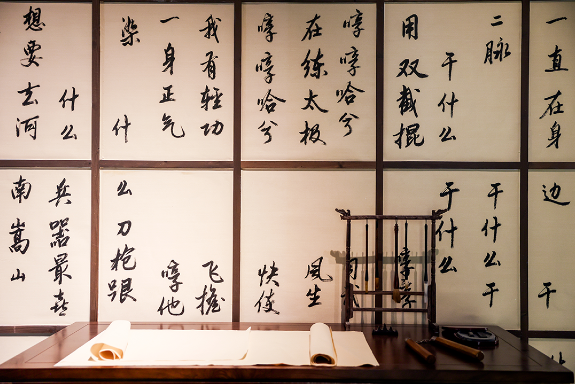 一直在身边 干
二脉 干什么干
干什么 干什么
用双截棍
哼哼哈兮
在练太极 风生
哼哼哈兮 快使
我有輕功 飞檐
一身正气 哼他
柒 什么刀枪跟
什么 兵器最喜
想要去河南嵩山